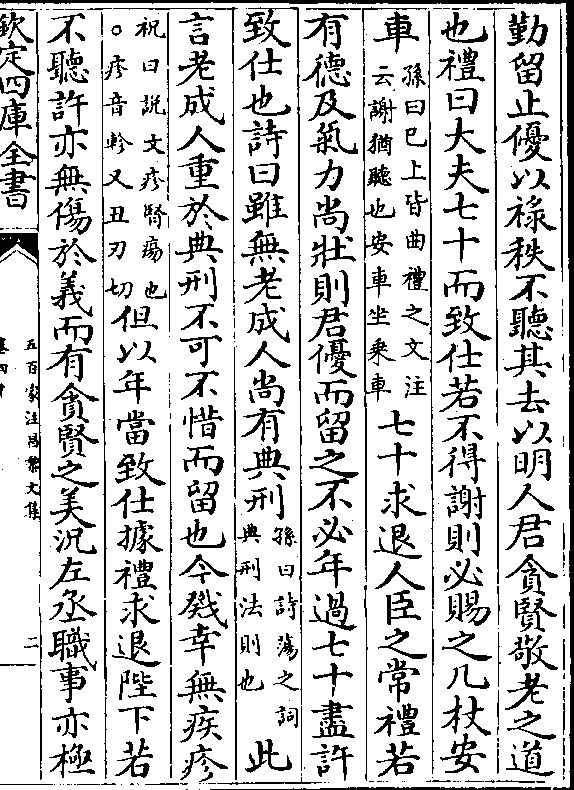 勤留止優以祿秩不聽其去以明人君貪賢敬老之道
也禮曰大夫七十而致仕若不得謝則必賜之几杖安
車孫曰已上皆曲禮之文注云謝猶聽也安車坐乘車七十求退人臣之常禮若
有德及氣力尚壯則君優而留之不必年過七十盡許
致仕也詩曰雖無老成人尚有典刑孫曰詩蕩之詞典刑法則也此
言老成人重於典刑不可不惜而留也今戣幸無疾疹
祝曰説文疹脣瘍也○疹音軫又丑刃切但以年當致仕據禮求退陛下若
不聽許亦無傷於義而有貪賢之美況左丞職事亦極
欽定四庫全書
五百家注昌黎文集
卷四十
二